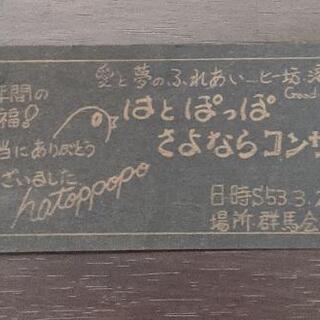 愛と夢のふれあい──ピー坊、
Good
年間の
福!
当にありがとう
ざいました
hatoppopo
はとぽっぽ
さよならコンサ
日時S53.3.2
場所.群馬会